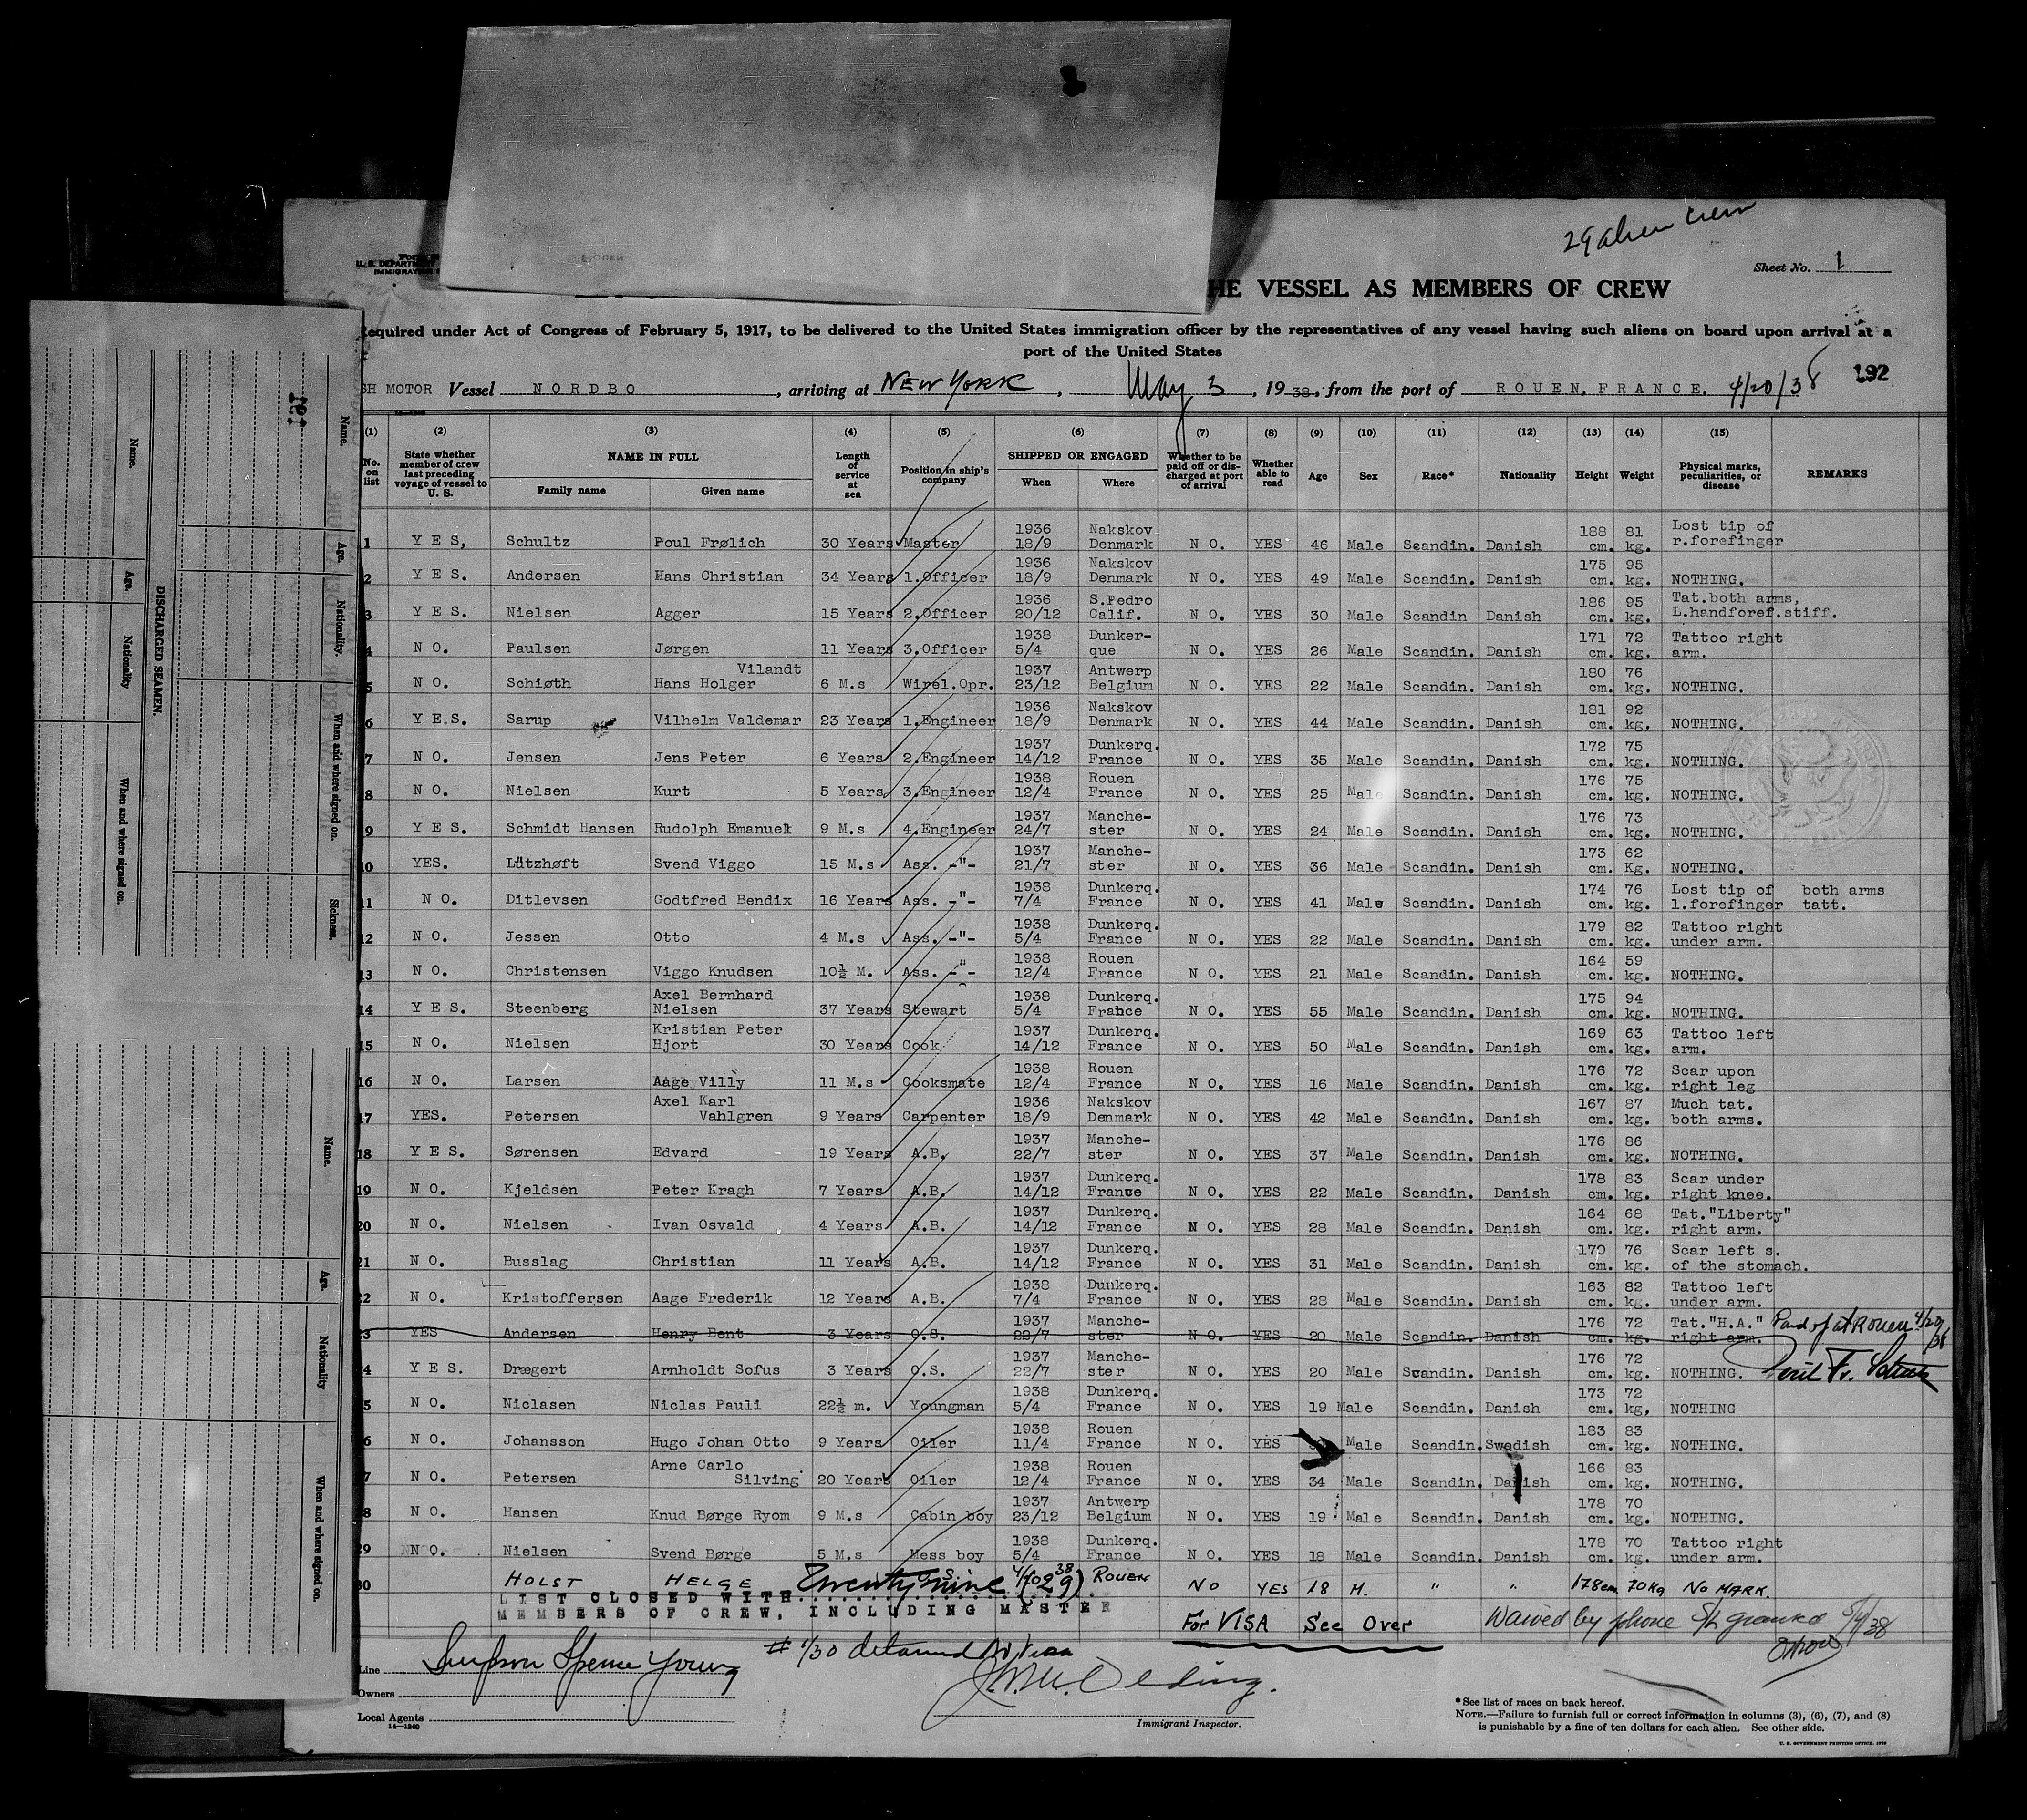 29 alien crew
Sheet No. 1
U. S. DEPARTMENT
IMMIGRATION
HE VESSEL AS MEMBERS OF CREW
equired under Act of Congress of February 5, 1917, to be delivered to the United States immigration officer by the representatives of any vessel having such aliens on board upon arrival at a
port of the United States
192
SH MOTOR Vessel NORDBO, arriving at NEW YORK, May 3, 1938, from the port of ROUEN, FRANCE. 4/20/38
(1) (2) (3) (4) (5) (6) (7) (8) (9) (10) (11) (12) (13) (14) (15)
No. on list State whether member of crew last preceding voyage of vessel to U. S. NAME IN FULL Family name Given name Length of service at sea Position in ship's company SHIPPED OR ENGAGED When Where Whether to be paid off or discharged at port of arrival Whether able to read Age Sex Race* Nationality Height Weight Physical marks, peculiarities, or disease REMARKS
1 YES, Schultz Poul Frølich 30 Years Master 1936 18/9 Nakskov Denmark NO. YES 46 Male Scandin. Danish 188 cm. 81 kg. Lost tip of r.forefinger
2 YES. Andersen Hans Christian 34 Years 1.Officer 1936 18/9 Nakskov Denmark NO. YES 49 Male Scandin. Danish 175 cm. 95 kg. NOTHING.
3 YES. Nielsen Agger 15 Years 2.Officer 1936 20/12 S.Pedro Calif. NO. YES 30 Male Scandin Danish 186 cm. 95 kg. Tat.both arms, L.handforef.stiff.
4 NO. Paulsen Jørgen 11 Years 3.Officer 1938 5/4 Dunker-que NO. YES 26 Male Scandin. Danish 171 cm. 72 kg. Tattoo right arm.
5 NO. Schiøth Hans Holger Vilandt 6 M.s Wirel.Opr. 1937 23/12 Antwerp Belgium NO. YES 22 Male Scandin. Danish 180 cm. 76 kg. NOTHING.
6 YES. Sarup Vilhelm Valdemar 23 Years 1.Engineer 1936 18/9 Nakskov Denmark NO. YES 44 Male Scandin. Danish 181 cm. 92 kg, NOTHING.
7 NO. Jensen Jens Peter 6 Years 2.Engineer 1937 14/12 Dunkerq. France NO. YES 35 Male Scandin. Danish 172 cm. 75 kg. NOTHING.
8 NO. Nielsen Kurt 5 Years 3.Engineer 1938 12/4 Rouen France NO. YES 25 Male Scandin. Danish 176 cm. 75 kg. NOTHING.
9 YES. Schmidt Hansen Rudolph Emanuel 9 M.s 4.Engineer 1937 24/7 Manche-ster NO. YES 24 Male Scandin. Danish 176 cm. 73 kg. NOTHING.
10 YES. Lützhøft Svend Viggo 15 M.s Ass. -"- 1937 21/7 Manche-ster NO. YES 36 Male Scandin. Danish 173 cm. 62 Kg. NOTHING.
11 NO. Ditlevsen Godtfred Bendix 16 Years Ass. -"- 1938 7/4 Dunkerq. France NO. YES 41 Male Scandin. Danish 174 cm. 76 kg. Lost tip of l.forefinger both arms tatt.
12 NO. Jessen Otto 4 M.s Ass. -"- 1938 5/4 Dunkerq. France NO. YES 22 Male Scandin. Danish 179 cm. 82 kg. Tattoo right under arm.
13 NO. Christensen Viggo Knudsen 10½ M. Ass. -"- 1938 12/4 Rouen France NO. YES 21 Male Scandin. Danish 164 cm. 59 kg. NOTHING.
14 YES. Steenberg Axel Bernhard Nielsen 37 Years Stewart 1938 5/4 Dunkerq. France NO. YES 55 Male Scandin. Danish 175 cm. 94 kg. NOTHING.
15 NO. Nielsen Kristian Peter Hjort 30 Years Cook 1937 14/12 Dunkerq. France NO. YES 50 Male Scandin. Danish 169 cm. 63 kg. Tattoo left arm.
16 NO. Larsen Aage Villy 11 M.s Cooksmate 1938 12/4 Rouen France NO. YES 16 Male Scandin. Danish 176 cm. 72 kg. Scar upon right leg
17 YES. Petersen Axel Karl Vahlgren 9 Years Carpenter 1936 18/9 Nakskov Denmark NO. YES 42 Male Scandin. Danish 167 cm. 87 kg. Much tat. both arms.
18 YES. Sørensen Edvard 19 Years A.B. 1937 22/7 Manche-ster NO. YES 37 Male Scandin. Danish 176 cm. 86 kg. NOTHING.
19 NO. Kjeldsen Peter Kragh 7 Years A.B. 1937 14/12 Dunkerq. France NO. YES 22 Male Scandin. Danish 178 cm. 83 kg. Scar under right knee.
20 NO. Nielsen Ivan Osvald 4 Years A.B. 1937 14/12 Dunkerq. France NO. YES 28 Male Scandin. Danish 164 cm. 68 kg. Tat."Liberty" right arm.
21 NO. Busslag Christian 11 Years A.B. 1937 14/12 Dunkerq. France NO. YES 31 Male Scandin. Danish 170 cm. 76 kg. Scar left s. of the stomach.
22 NO. Kristoffersen Aage Frederik 12 Years A.B. 1938 7/4 Dunkerq. France NO. YES 28 Male Scandin. Danish 163 cm. 82 kg. Tattoo left under arm.
23 YES Andersen Henry Bent 3 Years O.S. 1937 22/7 Manche-ster NO. YES 20 Male Scandin. Danish 176 cm. 72 kg. Tat."H.A." right arm. Paid of at Rouen 4/20/38
24 YES. Drægert Arnholdt Sofus 3 Years O.S. 1937 22/7 Manche-ster NO. YES 20 Male Scandin. Danish 176 cm. 72 kg. NOTHING.
25 NO. Niclasen Niclas Pauli 22½ m. Youngman 1938 5/4 Dunkerq. France NO. YES 19 Male Scandin. Danish 173 cm. 72 kg, NOTHING
26 NO. Johansson Hugo Johan Otto 9 Years Oiler 1938 11/4 Rouen France NO. YES Male Scandin. Swedish 183 cm. 83 kg. NOTHING.
27 NO. Petersen Arne Carlo Silving 20 Years Oiler 1938 12/4 Rouen France NO. YES 34 Male Scandin. Danish 166 cm. 83 kg. NOTHING.
28 NO. Hansen Knud Børge Ryom 9 M.s Cabin boy 1937 23/12 Antwerp Belgium NO. YES 19 Male Scandin. Danish 178 cm. 70 kg. NOTHING.
29 NO. Nielsen Svend Børge 5 M.s Mess boy 1938 5/4 Dunkerq. France NO. YES 18 Male Scandin. Danish 178 cm. 70 kg. Tattoo right under arm.
30 HOLST HELGE ROUEN NO YES 18 M. " " 178cm 70kg NO MARK.
LIST CLOSED WITH Twenty nine (29)
MEMBERS OF CREW, INCLUDING MASTER
For VISA See Over Waived by phone 5/4/38
# 1/30 detained No Visa
Line Simpson Spence Young
Owners
Local Agents
14—1240
Immigrant Inspector.
*See list of races on back hereof.
NOTE.—Failure to furnish full or correct information in columns (3), (6), (7), and (8)
is punishable by a fine of ten dollars for each alien. See other side.
U. S. GOVERNMENT PRINTING OFFICE
191
Name. Age. Nationality. When and where signed on. Sickness.
DISCHARGED SEAMEN.
Name. Age. Nationality When and where signed on.
Name. Age. Nationality When and where signed on.